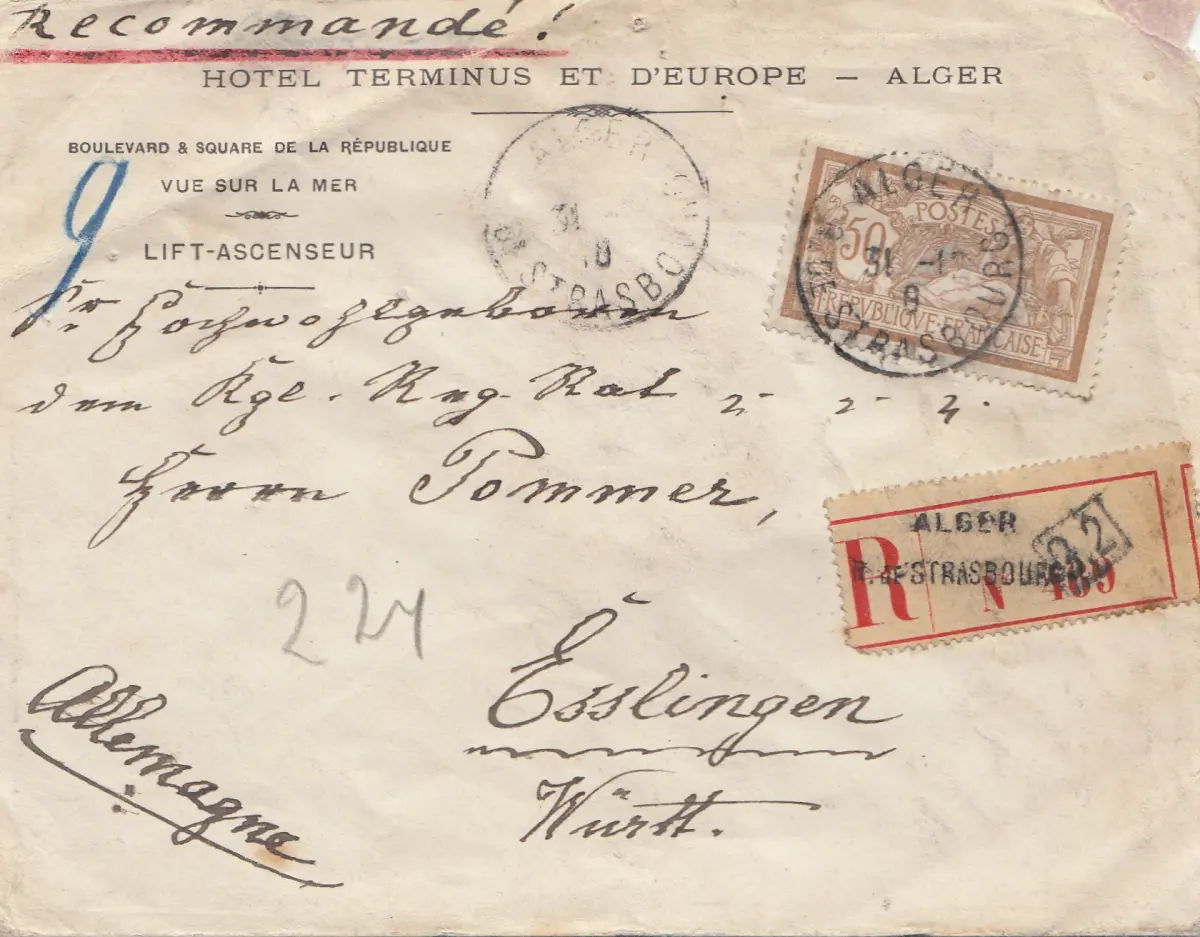 Recommandé !
HOTEL TERMINUS ET D'EUROPE — ALGER
BOULEVARD & SQUARE DE LA RÉPUBLIQUE
VUE SUR LA MER
LIFT-ASCENSEUR
9
ALGER
31
10
STRASBOURG
ALGER
31
R. DE STRASBOURG
50
POSTES
REPVBLIQVE FRANÇAISE
Sr Hochwohlgeboren
dem Kgl. Reg. Rat
Herrn Pommer,
R
ALGER
R. DE STRASBOURG
N
224
Esslingen
Württ.
Allemagne